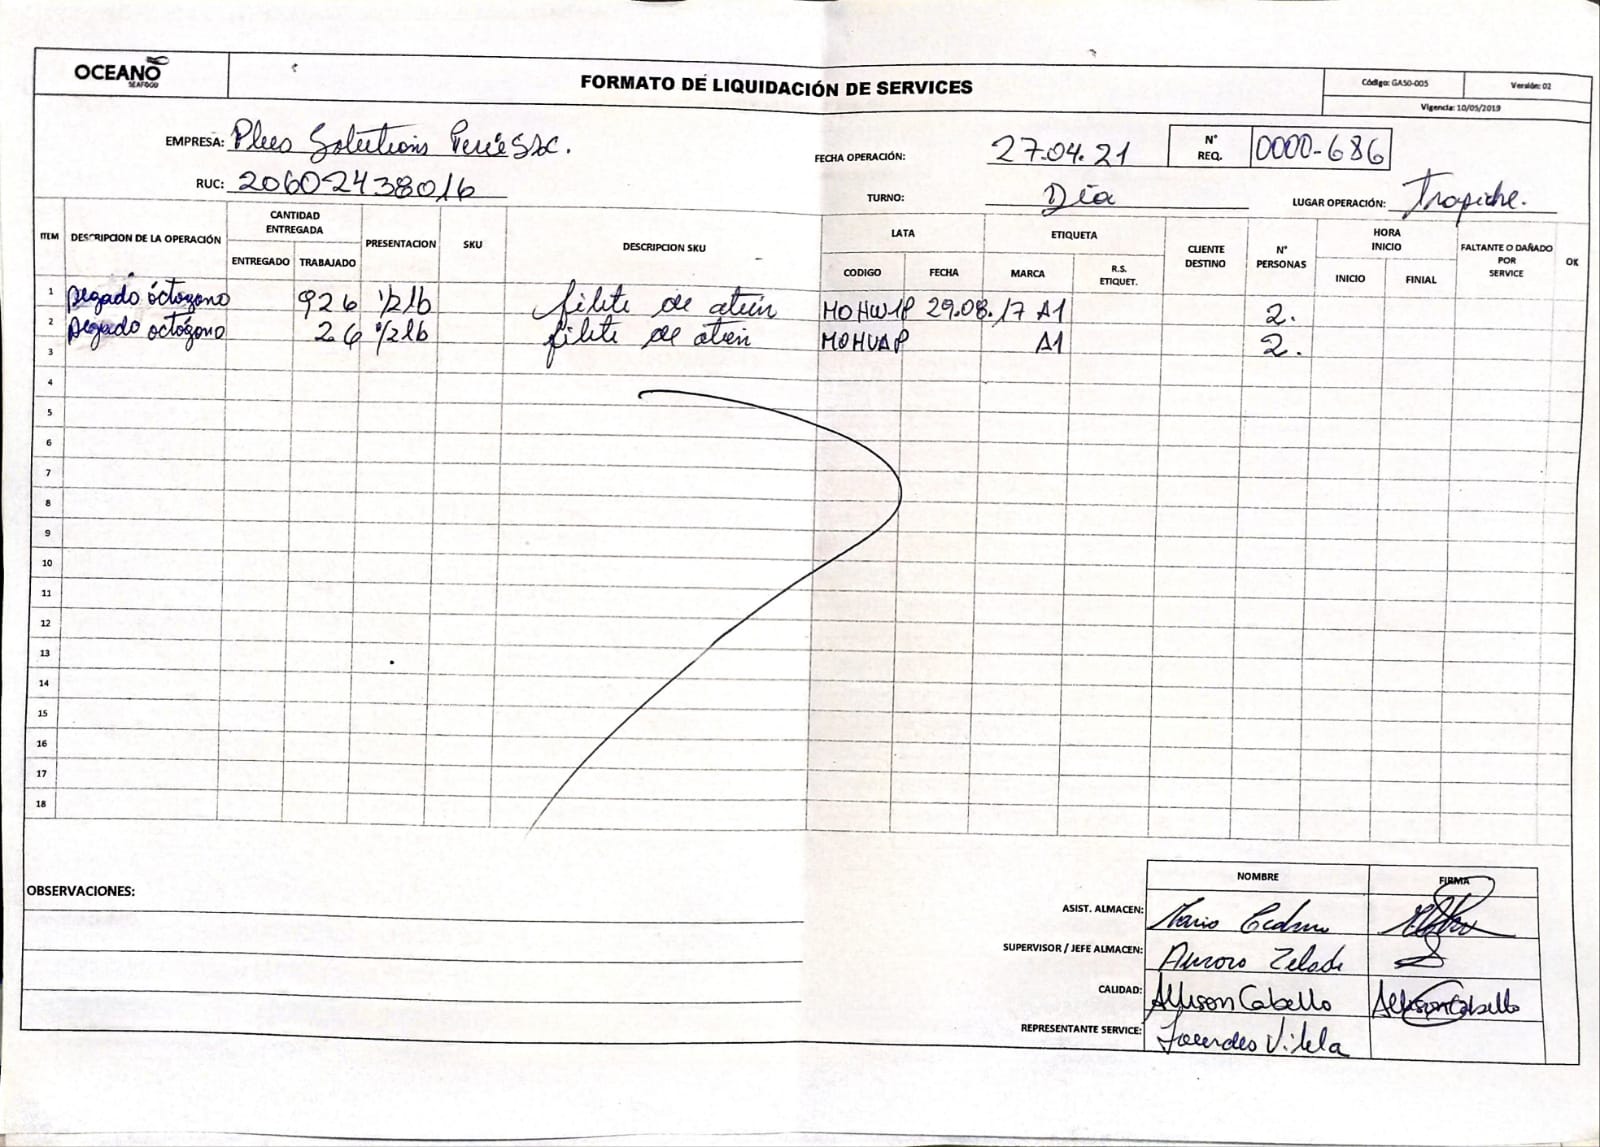 OCEANO
SEAFOOD
FORMATO DE LIQUIDACIÓN DE SERVICES
Código: GASO-005
Versión: 02
Vigencia: 10/05/2019
EMPRESA: Plees Solutions Perú SSC.
FECHA OPERACIÓN: 27.04.21
N° REQ. 0000-686
RUC: 20602438016
TURNO: Día
LUGAR OPERACIÓN: Trapiche.
ITEM DESCRIPCION DE LA OPERACIÓN CANTIDAD ENTREGADA PRESENTACION SKU DESCRIPCION SKU LATA ETIQUETA CLIENTE DESTINO N° PERSONAS HORA INICIO FALTANTE O DAÑADO POR SERVICE OK
ENTREGADO TRABAJADO CODIGO FECHA MARCA R.S. ETIQUET. INICIO FINIAL
1 Pegado óctogono 926 1/2lb filete de atún MOHW1P 29.08.17 A1 2.
2 Pegado octógono 26 1/2lb filete de atún MOHUAP A1 2.
3
4
5
6
7
8
9
10
11
12
13
14
15
16
17
18
OBSERVACIONES:
NOMBRE FIRMA
ASIST. ALMACEN: Mario
SUPERVISOR / JEFE ALMACEN: Aurora Zelade
CALIDAD: Allison Cabello Allison Cabello
REPRESENTANTE SERVICE: Lourdes Vilela